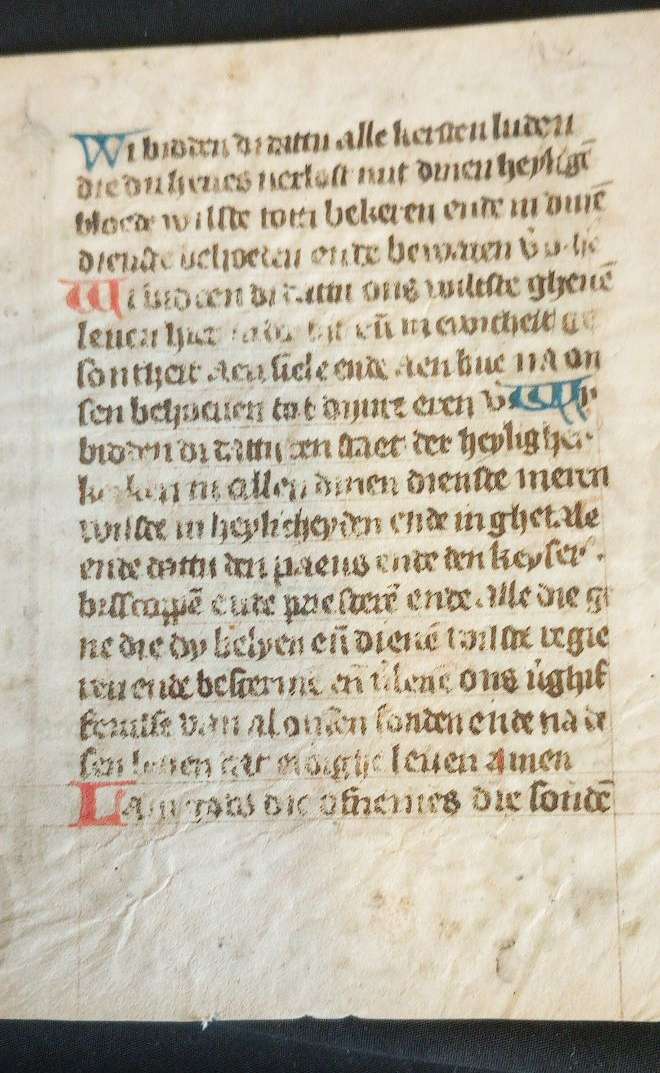 Wi bidden di dattu alle kersten luden
die du heues verlost mit dinen heyligē
bloede wilste totti bekeren ende in dinē
dienste behoeden ende bewaren
Wi bidden di dattu ons wilste gheuē
leuen hier eñ in ewicheit ge
sontheit aen siele ende aen liue na on
sen behoeuen tot dijnre eren Wi
bidden di dattu den staet der heyligher
kerken in allen dinen dienste meren
wilste in heylicheyden ende in ghetale
ende dattu den paeus ende den keyser
bisscoppē ende priesterē ende alle die ge
ne die dy belyen eñ dienē wilste regie
ren ende bescermē eñ v̄lenē ons v̄ghif
fenisse van al onsen sonden ende na de
sen leuen dat ewighe leuen amen
Lam gods die ofnemes die sondē